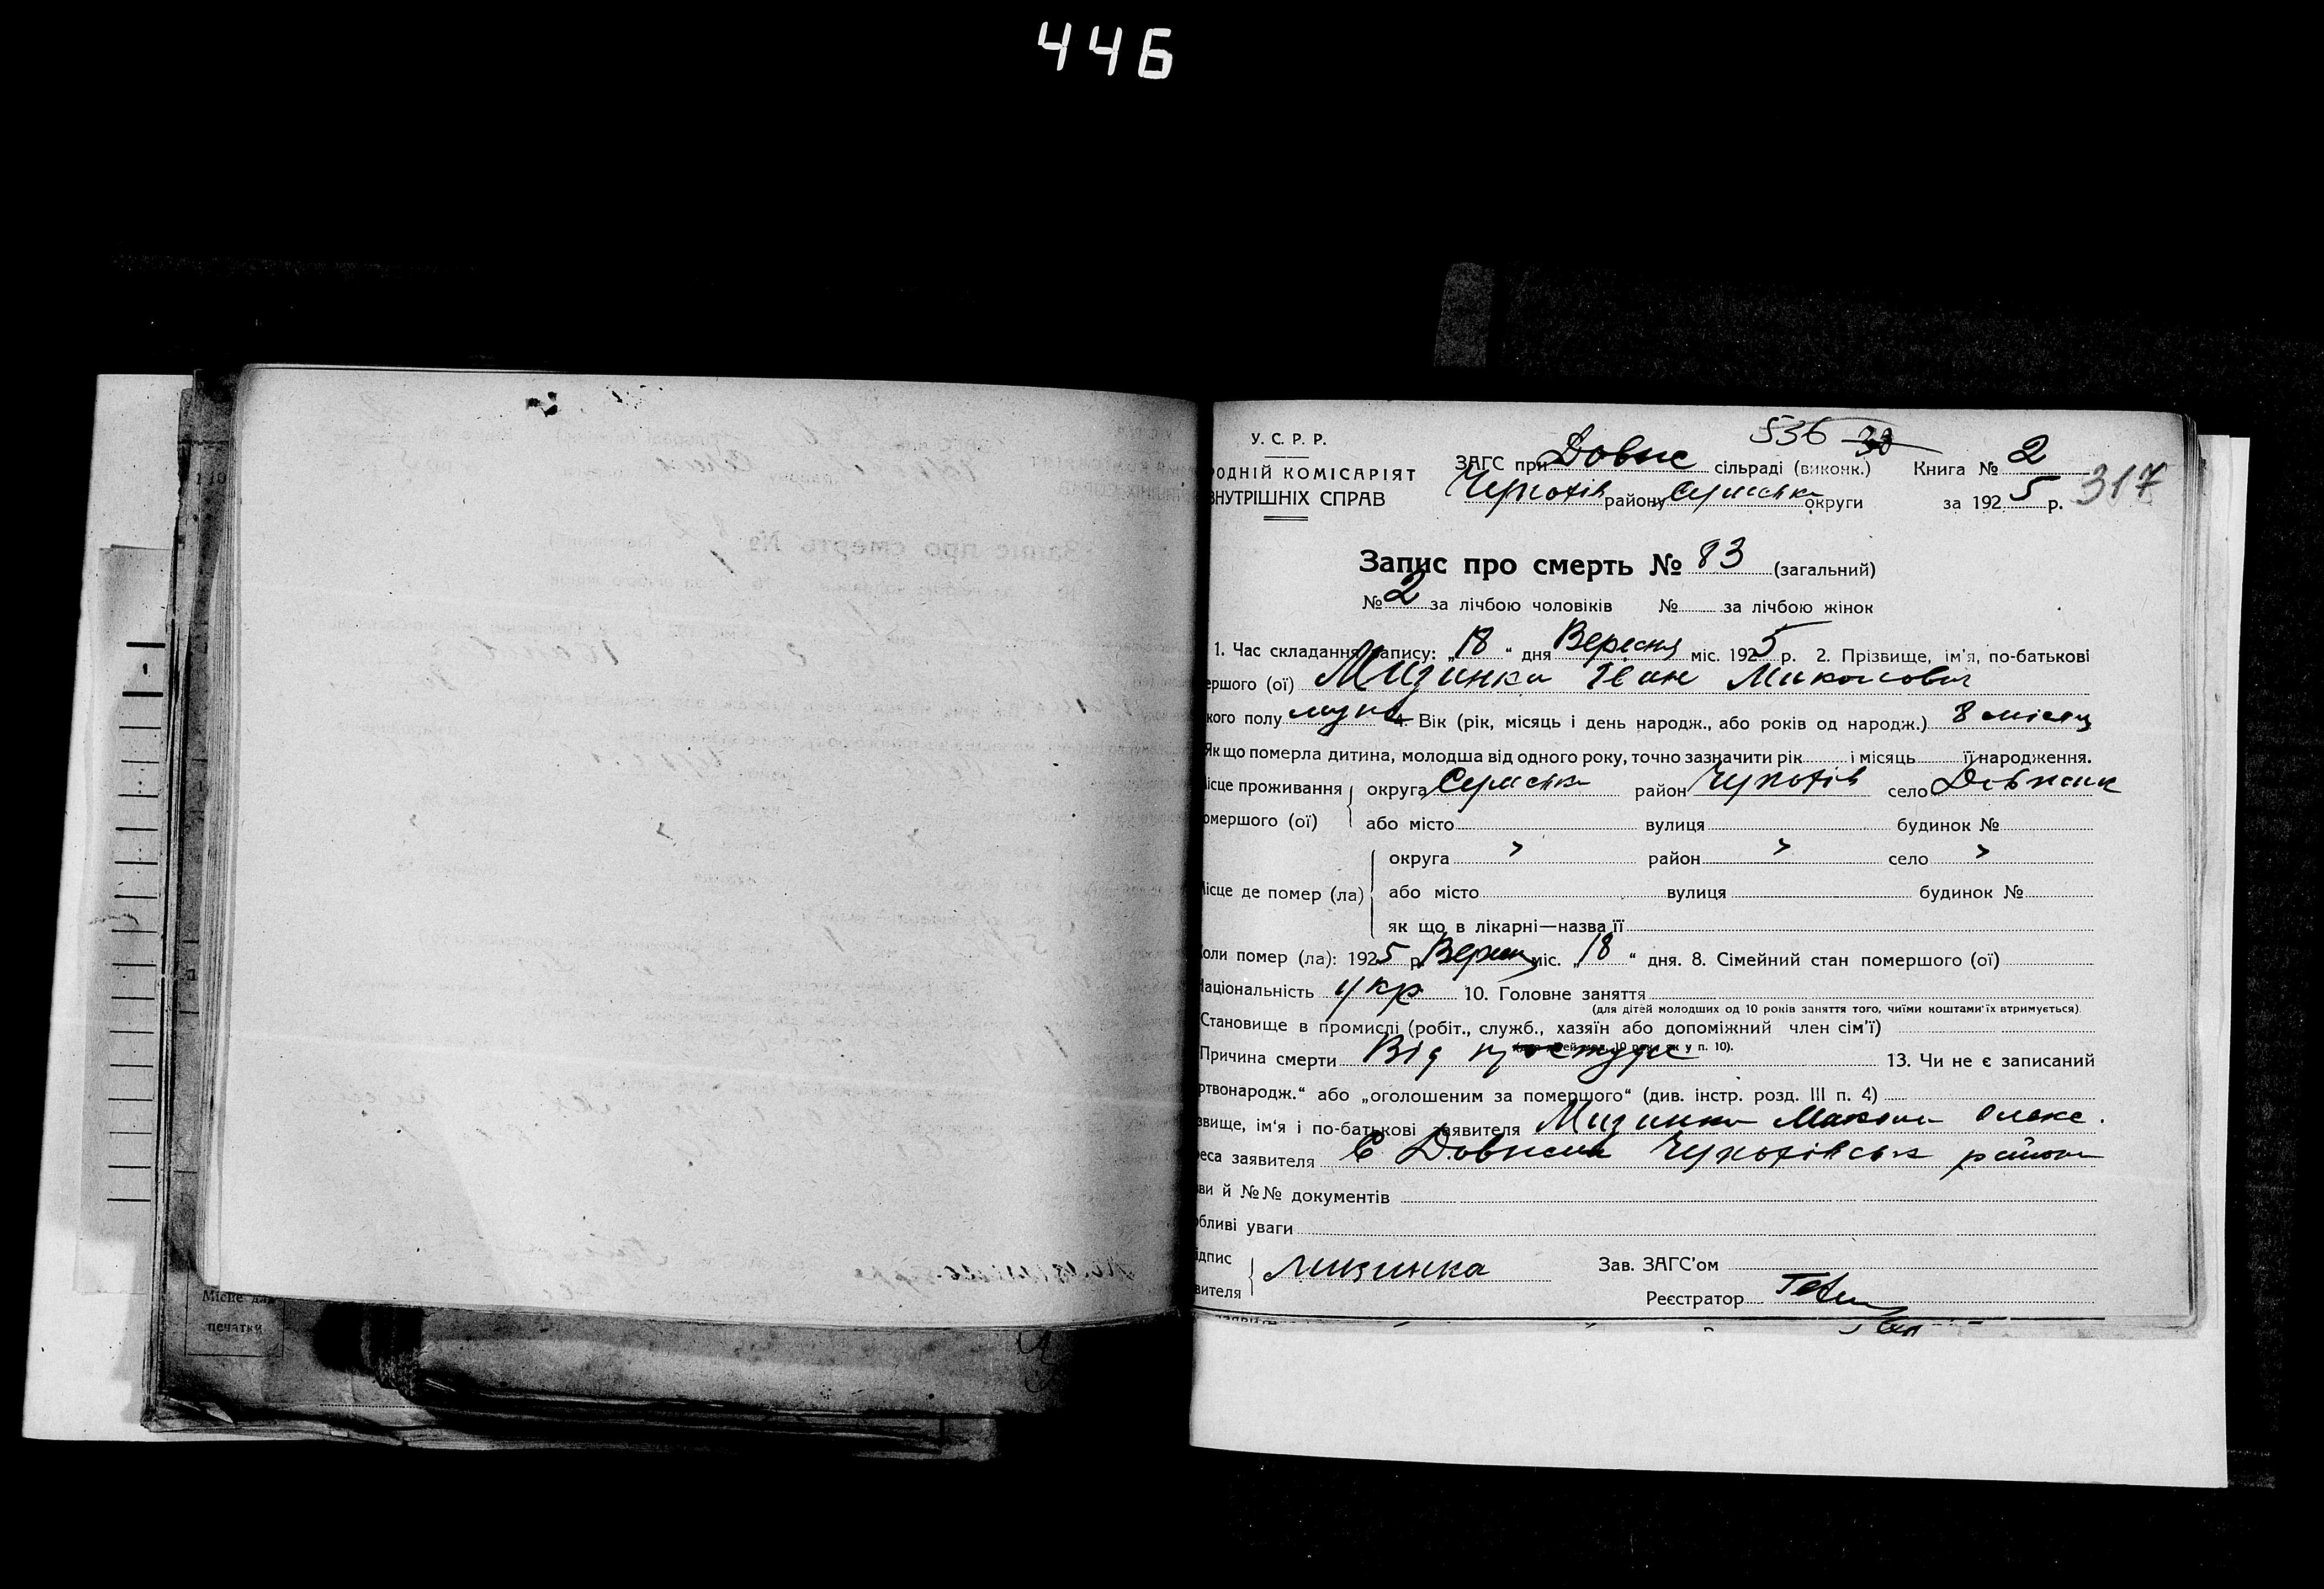 446
У. С. Р. Р.
РОДНІЙ КОМІСАРІЯТ
ВНУТРІШНІХ СПРАВ
536 30
ЗАГС при Довжс сільраді (виконк.) Книга № 2
району округи за 1925 р. 317
Запис про смерть № 83 (загальний)
№ 2 за лічбою чоловіків № за лічбою жінок
1. Час складання запису: „18“ дня Вересня міс. 1925 р. 2. Прізвище, ім'я, по-батькові
ершого (ої) Мизинка Іван Миколович
кого полу муж 4. Вік (рік, місяць і день народж., або років од народж.) 8 місяц
Якщо померла дитина, молодша від одного року, точно зазначити рік і місяць її народження.
ісце проживання округа район село
омершого (ої) або місто вулиця будинок №
округа > район > село >
ісце де помер (ла) або місто вулиця будинок №
як що в лікарні—назва її
оли помер (ла): 1925 р. міс. „18“ дня. 8. Сімейний стан помершого (ої)
аціональність укр 10. Головне заняття
(для дітей молодших од 10 років заняття того, чиїми коштами їх втримується)
Становище в промислі (робіт., служб., хазяїн або допоміжний член сім'ї)
Причина смерти Від простуди 13. Чи не є записаний
ртвонародж.“ або „оголошеним за помершого“ (див. інстр. розд. III п. 4)
звище, ім'я і по-батькові заявителя Мизинка Микола Олекс.
реса заявителя С Довжик району
зви й №№ документів
обливі уваги
ідпис мизинка Зав. ЗАГС'ом
вителя Реєстратор
Місце для
печатки